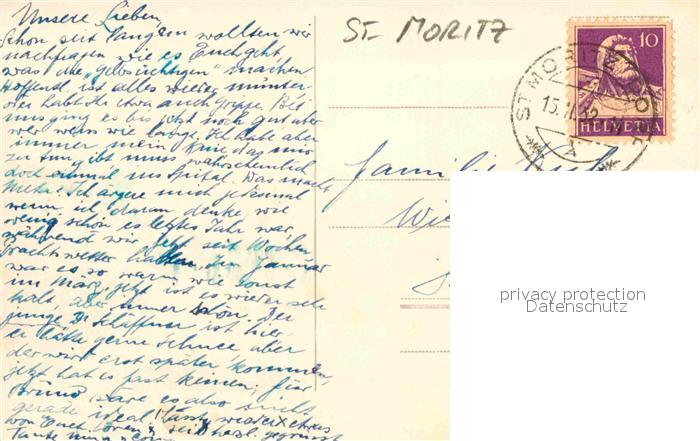 Unsere Lieben,
Schon seit langem wollten wir
nachfragen wie es Euch geht,
was die "Gelbsüchtigen" machen
Hoffentl. ist alles wieder munter
oder habt Ihr etwa auch Grippe. Bei
uns ging es bis jetzt noch gut aber
wer weiss wie lange. Ich habe aber
immer mein Knie das mir
zu tun gibt muss wahrscheinlich
doch einmal ins Spital. Was macht
Meta? Ich ärgere mich jedesmal
wenn ich daran denke, wie
wenig schön es letztes Jahr war,
während wir jetzt seit Wochen
Prachtswetter hatten. Im Januar
war es so warm wie sonst
im März, jetzt ist es wieder sehr
kalt, aber immer schön. Der
junge Dr. Schäffner ist hier,
er hätte gerne Schnee aber
der wird erst später kommen,
jetzt hat es fast keinen, für
Bruno wäre es also nicht
gerade ideal. Lasst wieder etwas
von Euch hören & seid herzl. gegrüsst
ST. MORITZ
10
HELVETIA
ST. MORITZ
15.II.32
Familie
privacy protection
Datenschutz